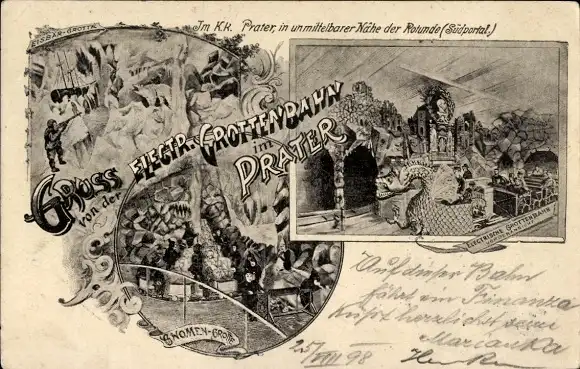 Im K.k. Prater, in unmittelbarer Nähe der Rotunde (Südportal.)
EISBÄR-GROTTE
GRUSS
von der
ELECTR. GROTTENBAHN
im
PRATER
ELECTRISCHE GROTTENBAHN
GNOMEN-GROTTE
Auf dieser Bahn
fährt ein Finanza
küßt herzlichst seine
Marianka
25/VIII 98